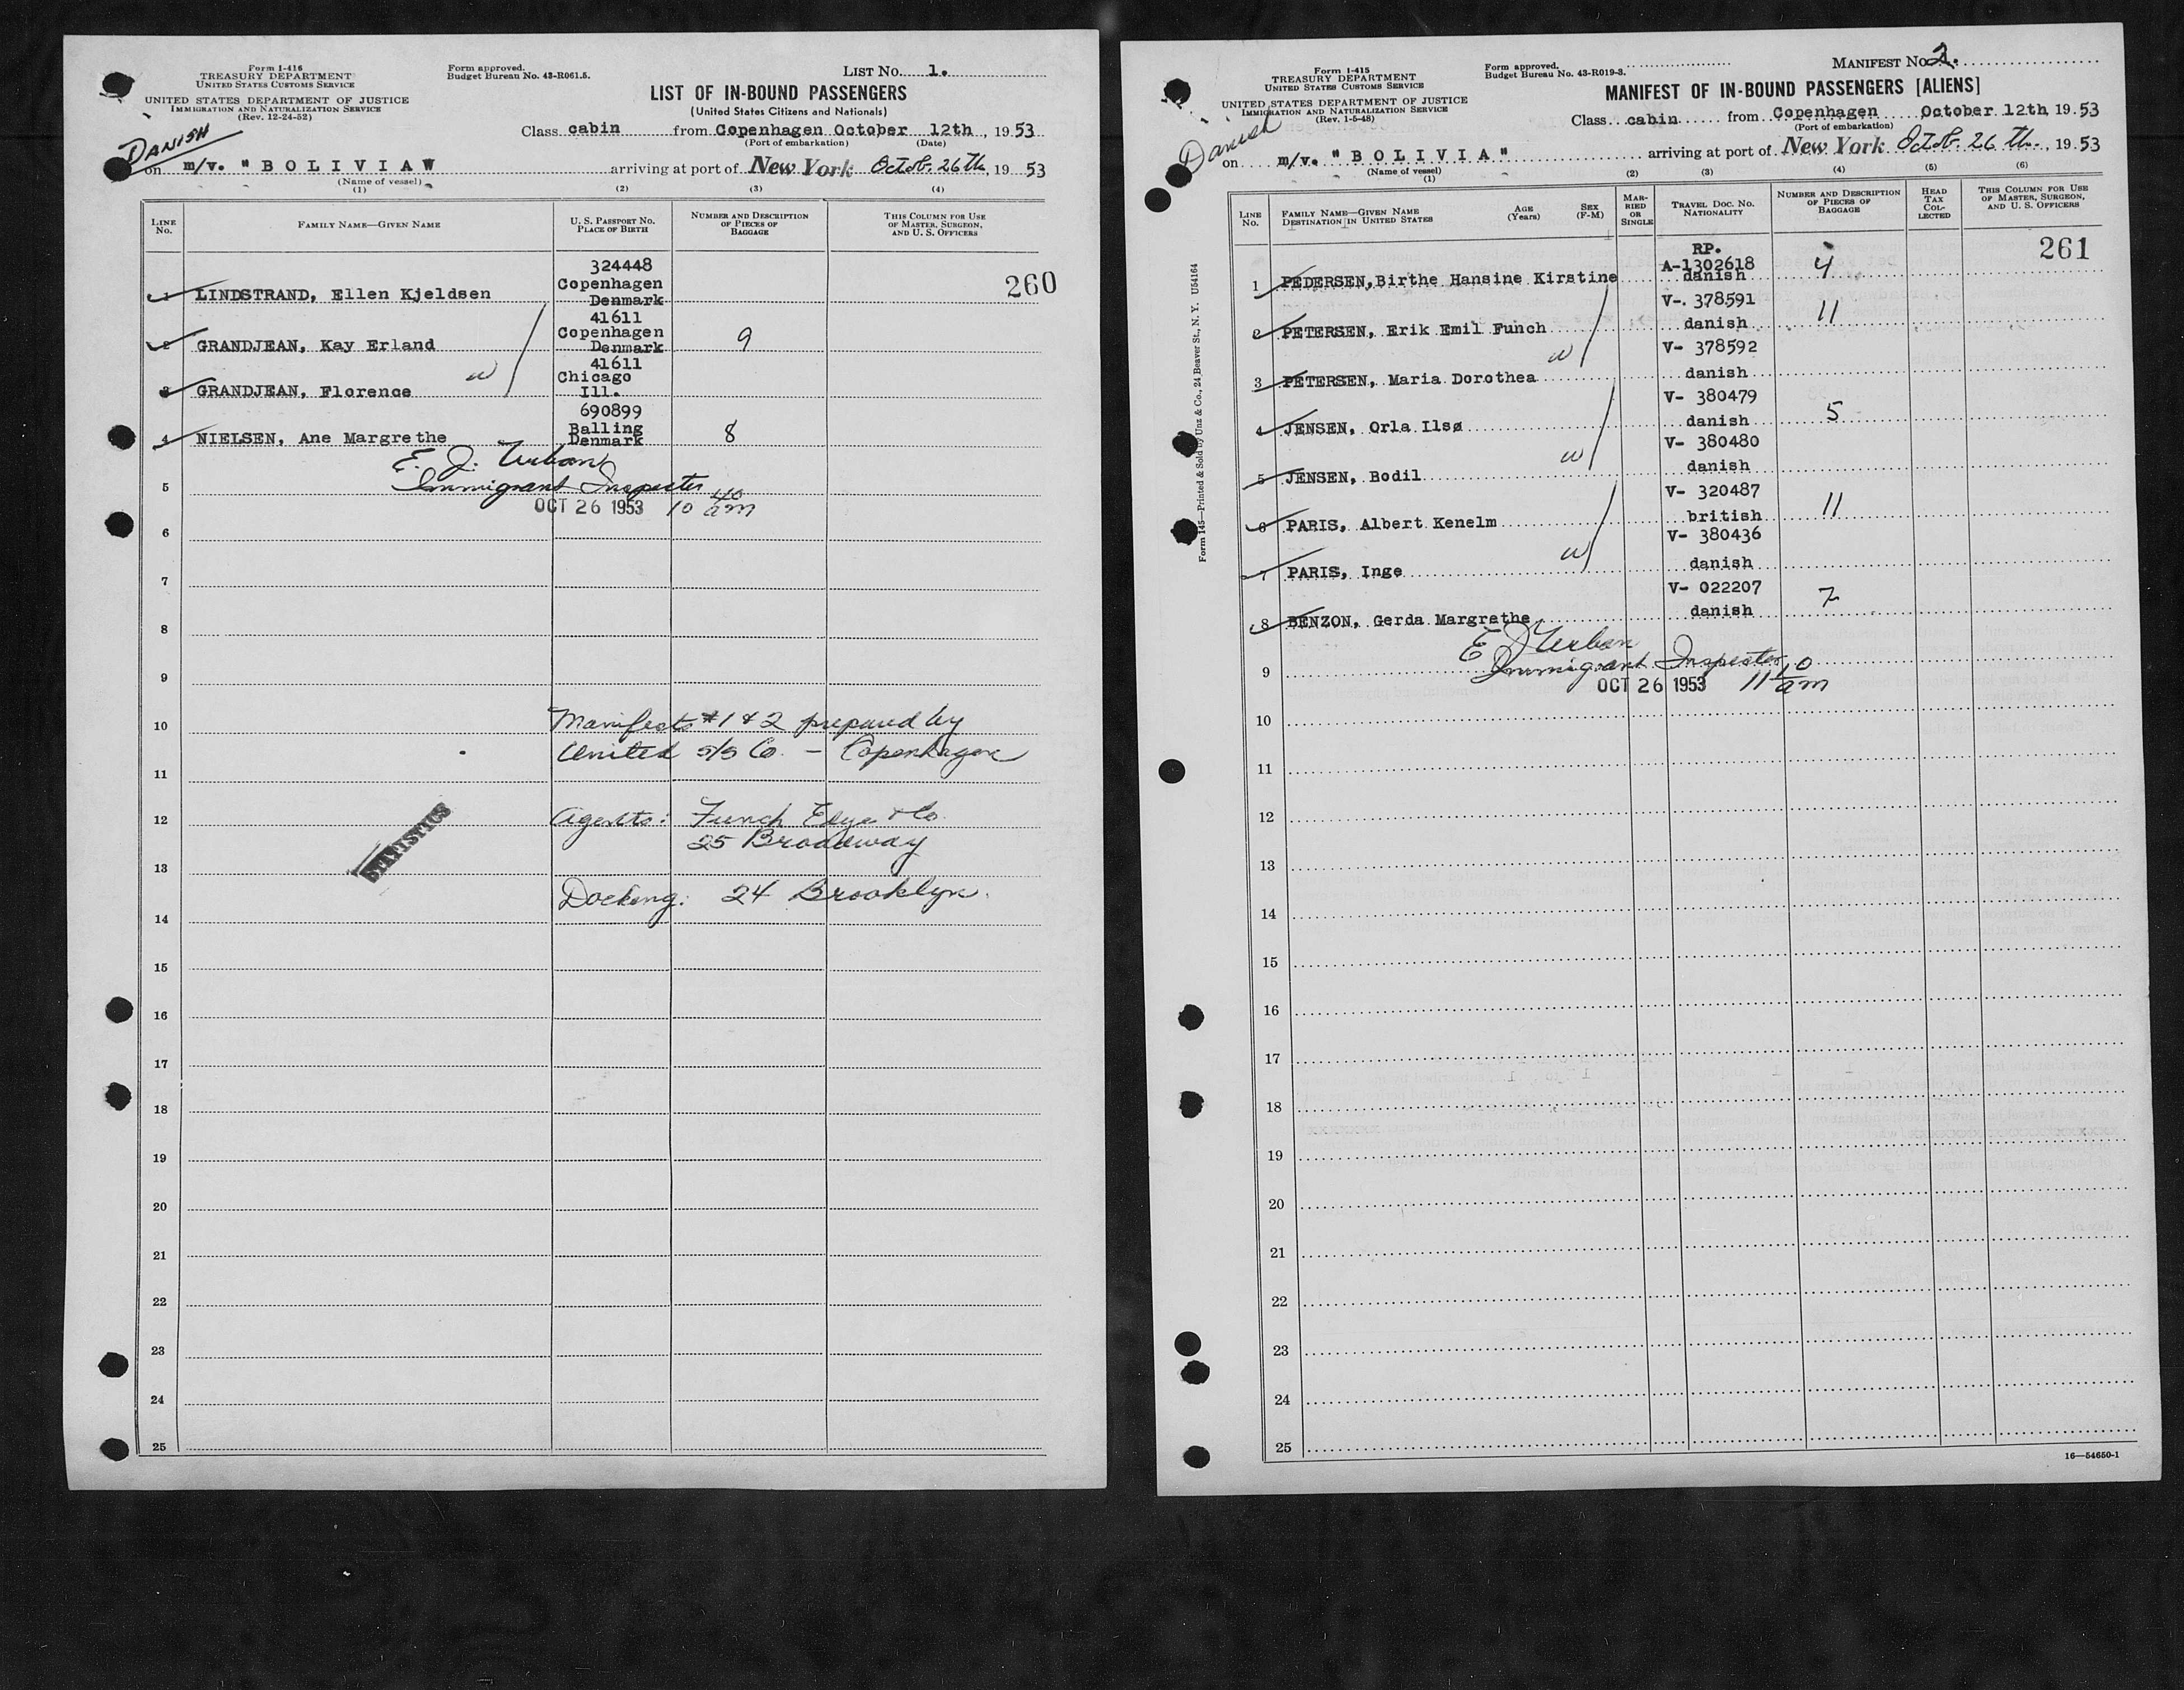 Form I-416
TREASURY DEPARTMENT
UNITED STATES CUSTOMS SERVICE
UNITED STATES DEPARTMENT OF JUSTICE
IMMIGRATION AND NATURALIZATION SERVICE
(Rev. 12-24-52)
Form approved.
Budget Bureau No. 43-R061.5.
LIST No. 1.
LIST OF IN-BOUND PASSENGERS
(United States Citizens and Nationals)
DANISH
Class cabin from Copenhagen October 12th, 1953
(Port of embarkation) (Date)
on m/v. "BOLIVIAW arriving at port of New York Octob. 26th, 1953
(Name of vessel)
(1) (2) (3) (4)
LINE No. FAMILY NAME—GIVEN NAME U. S. PASSPORT NO. PLACE OF BIRTH NUMBER AND DESCRIPTION OF PIECES OF BAGGAGE THIS COLUMN FOR USE OF MASTER, SURGEON, AND U. S. OFFICERS
260
324448
Copenhagen
1 LINDSTRAND, Ellen Kjeldsen Denmark
41611
Copenhagen
2 GRANDJEAN, Kay Erland Denmark 9
41611
Chicago
3 GRANDJEAN, Florence w Ill.
690899
Balling
4 NIELSEN, Ane Margrethe Denmark 8
E. J. Urban
5 Immigrant Inspector
OCT 26 1953 10 40 am
6
7
8
9
10 Manifests #1 & 2 prepared by
United S/S Co. — Copenhagen
11
12 Agents: Funch Edye & Co.
25 Broadway
STATISTICS
13
Docking: 24 Brooklyn.
14
15
16
17
18
19
20
21
22
23
24
25
Form I-415
TREASURY DEPARTMENT
UNITED STATES CUSTOMS SERVICE
UNITED STATES DEPARTMENT OF JUSTICE
IMMIGRATION AND NATURALIZATION SERVICE
(Rev. 1-5-48)
Form approved.
Budget Bureau No. 43-R019-3.
MANIFEST No. 2.
MANIFEST OF IN-BOUND PASSENGERS [ALIENS]
Danish
Class cabin from Copenhagen October 12th, 1953
(Port of embarkation)
on m/v. "BOLIVIA" arriving at port of New York Octob. 26 th., 1953
(Name of vessel)
(1) (2) (3) (4) (5) (6)
LINE No. FAMILY NAME—GIVEN NAME DESTINATION IN UNITED STATES AGE (Years) SEX (F-M) MARRIED OR SINGLE TRAVEL DOC. NO. NATIONALITY NUMBER AND DESCRIPTION OF PIECES OF BAGGAGE HEAD TAX COLLECTED THIS COLUMN FOR USE OF MASTER, SURGEON, AND U. S. OFFICERS
261
RP.
A-1302618
1 PEDERSEN, Birthe Hansine Kirstine danish 4
V-. 378591
2 PETERSEN, Erik Emil Funch danish 11
V- 378592
3 PETERSEN, Maria Dorothea w danish
V- 380479
4 JENSEN, Orla Ilsø danish 5
V- 380480
5 JENSEN, Bodil w danish
V- 320487
6 PARIS, Albert Kenelm british 11
V- 380436
7 PARIS, Inge w danish
V- 022207
8 BENZON, Gerda Margrethe danish 7
E J Urban
9 Immigrant Inspector
OCT 26 1953 11 10 am
10
11
12
13
14
15
16
17
18
19
20
21
22
23
24
25
16—54650-1
Form 145—Printed & Sold by Unz & Co., 24 Beaver St., N. Y. U54164